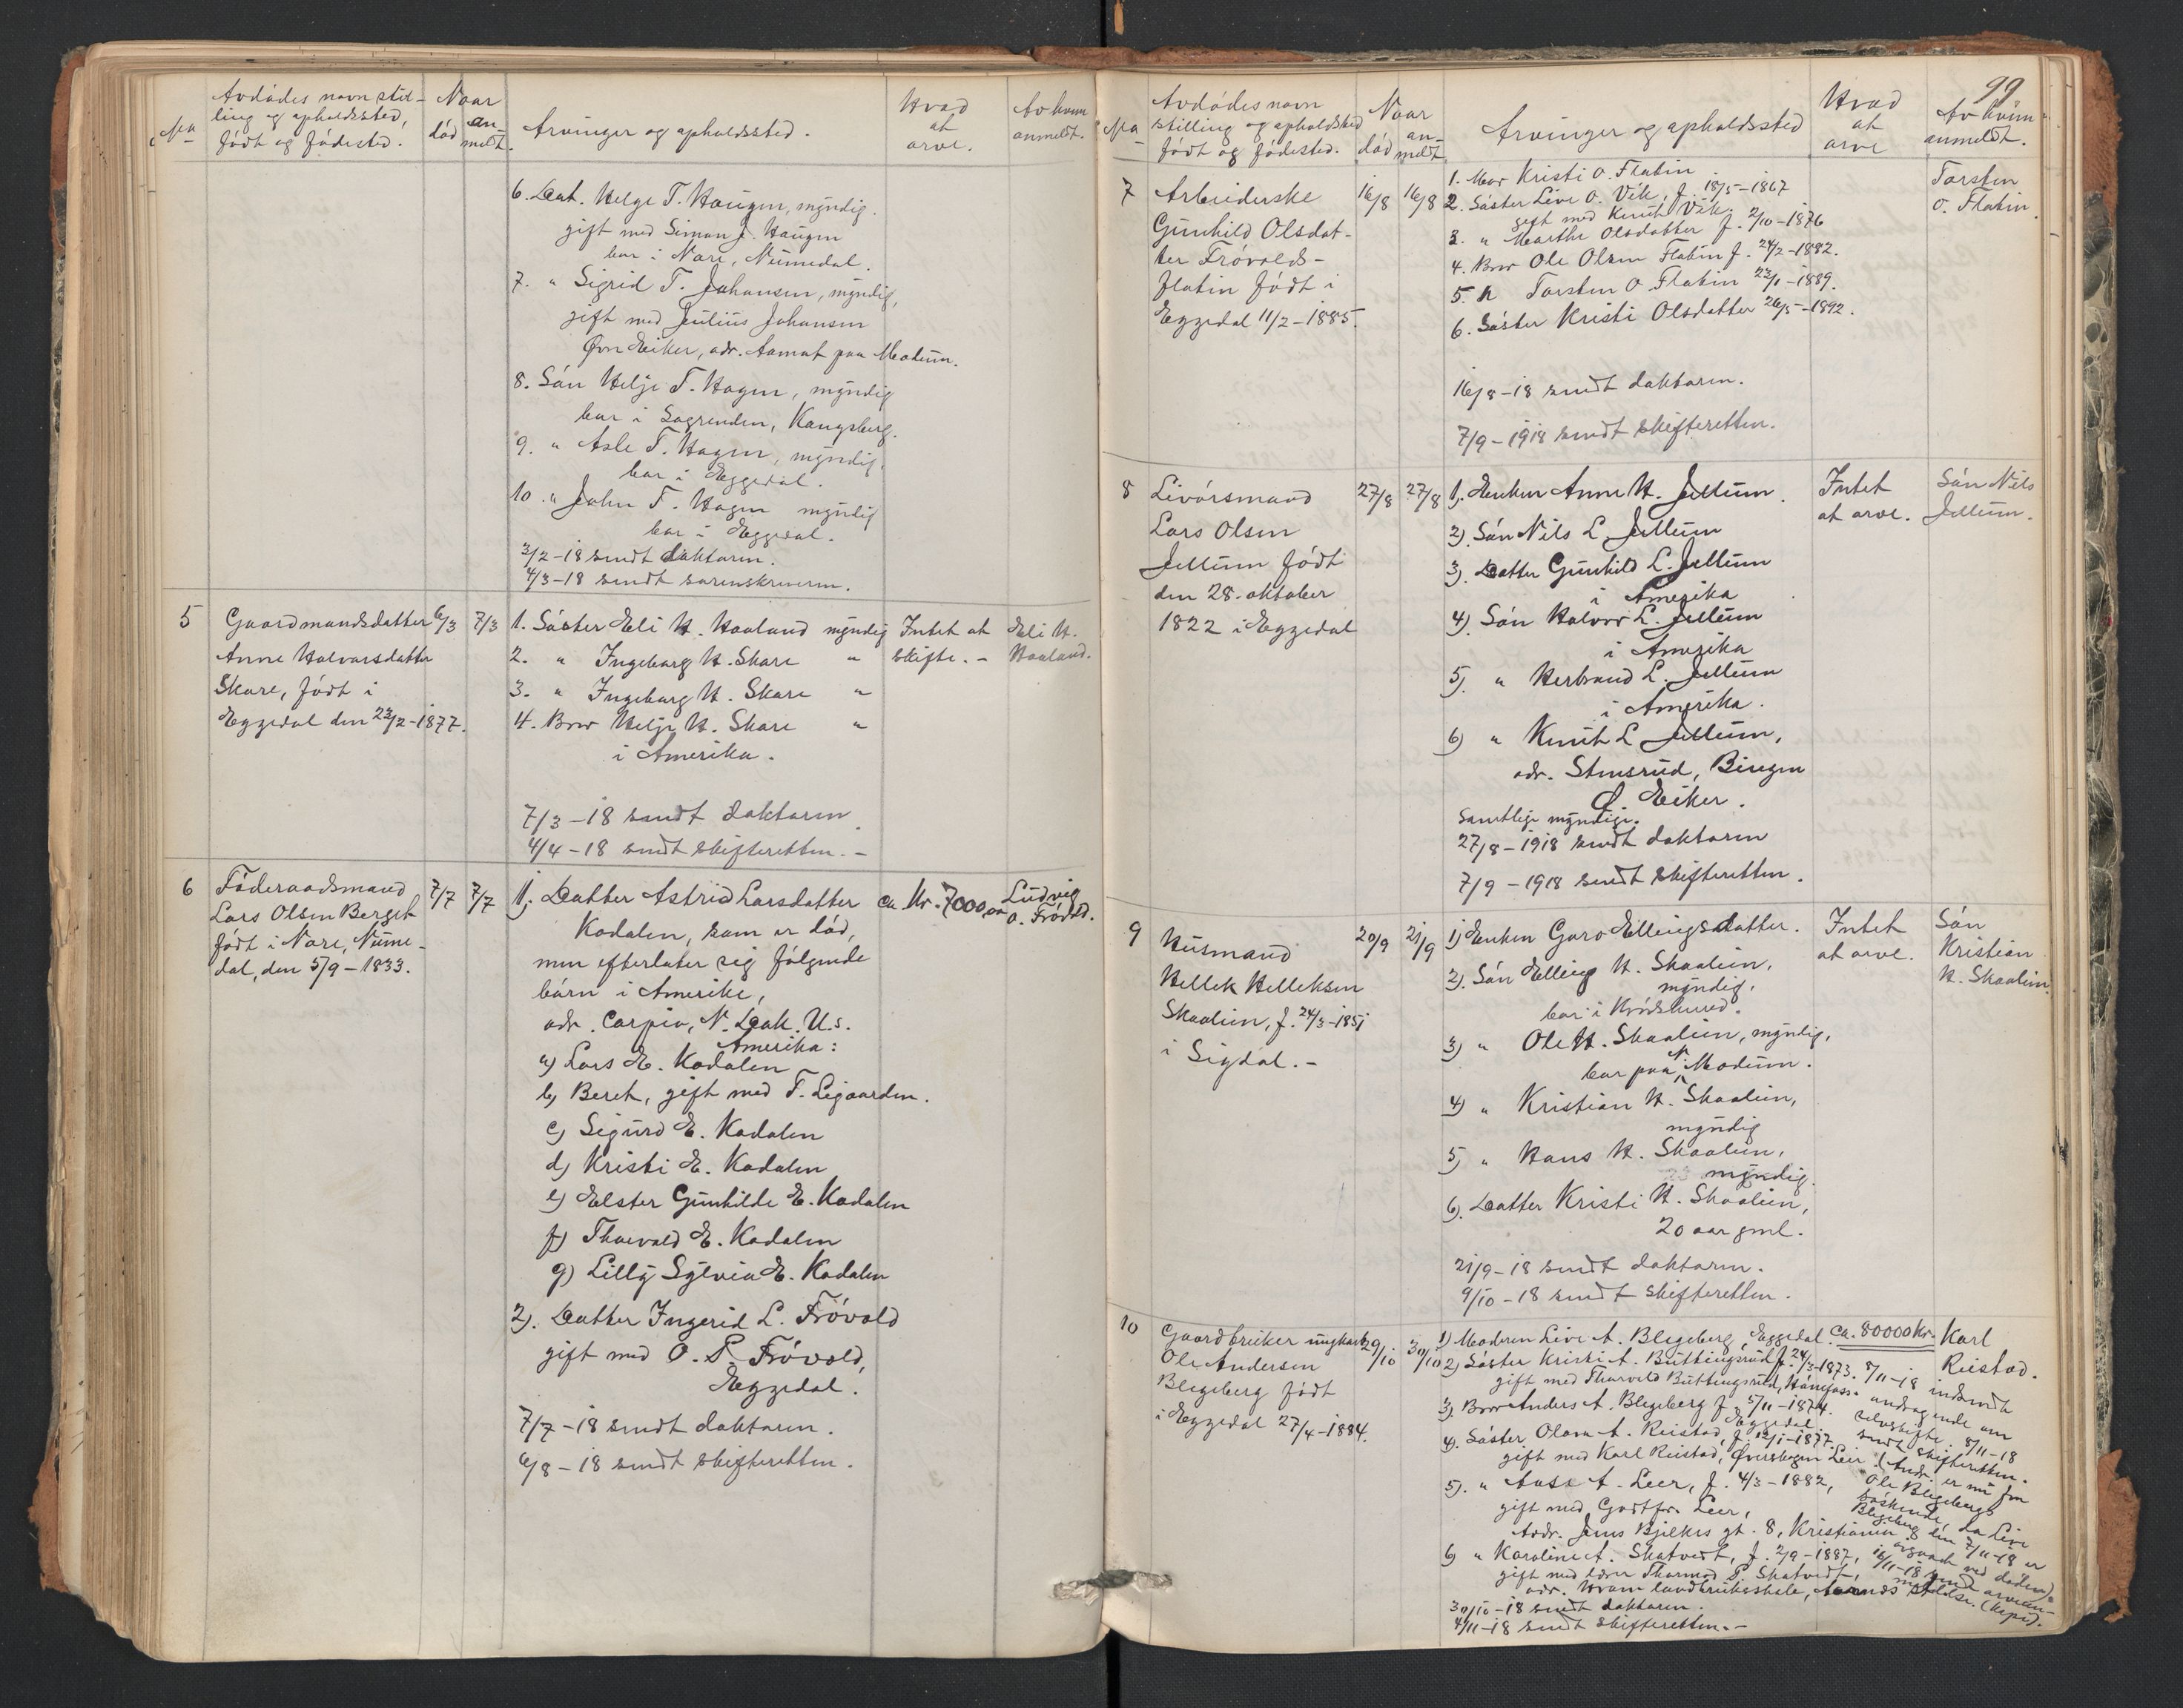 No
Avdödes navn stil-
ling og opholdssted,
födt og födested.
Naar
död
an-
meldt.
Arvinger og opholdssted.
Hvad
at
arve.
Av hvem
anmeldt.
6. Dat. Helge T. Haugen, myndig.
gift med Simon J. Haugen
bor i Nore, Numedal.
7. " Sigrid T. Johansen, myndig,
gift med Julius Johansen
Øvre Eiker, adr. Aamot paa Modum.
8. Sön Helje T. Hagen, myndig
bor i Sagrenden, Kongsberg.
9. " Asle T. Hagen, myndig,
bor i Eggedal.
10. " John T. Hagen myndig
bor i Eggedal.
3/2-18 sendt doktoren.
4/3-18 sendt sorenskriveren.
5
Gaardmandsdatter
Anne Halvorsdatter
Skare, födt i
Eggedal den 23/2-1877.
6/3
7/3
1. Söster Eli H. Haaland myndig
2. " Ingeborg H. Skare "
3. " Ingeborg H. Skare "
4. Bror Helje H. Skare "
i Amerika.
7/3-18 sendt doktoren.
4/4-18 sendt skifteretten.-
Intet at
skifte.-
Eli H.
Haaland.
6
Föderaadsmand
Lars Olsen Berget
födt i Nore, Nume-
dal, den 5/9-1833.
7/7
7/7
1). Datter Astrid Larsdatter
Kadalen, som er död,
men efterlater sig fölgende
börn i Amerika,
adr. Carpio, N. Dak. U.S.
Amerika:
a) Lars E. Kadalen
b) Beret, gift med T. Ligaarden.
c) Sigurd E. Kadalen
d) Kristi E. Kadalen
e) Elster Gunhilde E. Kadalen
f) Thorvald E. Kadalen
g) Lilly Sylvia E. Kadalen
2). Datter Ingerid L. Frövold
gift med O. P. Frövold,
Eggedal.
7/7-18 sendt doktoren.
6/8-18 sendt skifteretten.
ca. Kr. 7000,00
Ludvig
O. Frövold.
99
No
Avdödes navn
stilling og opholdssted
födt og födested.
Naar
död
an-
meldt
Arvinger og opholdssted
Hvad
at
arve
Av hvem
anmeldt.
7
Arbeiderske
Gunhild Olsdat-
ter Frövolds-
flatin födt i
Eggedal 11/2-1885.
16/8
16/8
1. Mor Kristi O. Flatin
2. Söster Live O. Vik, f. 18/5-1867
gift med Knut Vik.
3. " Marthe Olsdatter f. 2/10-1876
4. Bror Ole Olsen Flatin f. 24/2-1882.
5. " Torsten O. Flatin 23/1-1889.
6. Söster Kristi Olsdatter 26/5-1892.
16/8-18 sendt doktoren.
7/9-1918 sendt skifteretten.
Torsten
O. Flatin.
8
Livörsmand
Lars Olsen
Jellum födt
den 28. oktober
1822 i Eggedal
27/8
27/8
1). Enken Anne H. Jellum.
2). Sön Nils L. Jellum
3). Datter Gunhild L. Jellum
i Amerika
4). Sön Halvor L. Jellum
i Amerika
5). " Herbrand L. Jellum
i Amerika.
6) " Knut L. Jellum,
adr. Stensrud, Bingen
Ø. Eiker.
Samtlige myndige.
27/8-1918 sendt doktoren
7/9-1918 sendt skifteretten.
Intet
at arve.
Sön Nils
Jellum.
9
Husmand
Hellek Helleksen
Skaalien, f. 24/3-1851
i Sigdal.-
20/9
21/9
1) Enken Garo Ellingsdatter.
2). Sön Elling H. Skaalien,
myndig,
bor i Krödsherred.
3) " Ole H. Skaalien, myndig,
bor paa N. Modum.
4) " Kristian H. Skaalien,
myndig
5) " Hans H. Skaalien,
myndig.
6). Datter Kristi H. Skaalien,
20 aar gml.
21/9-18 sendt doktoren.
9/10-18 sendt skifteretten.
Intet
at arve.
Sön
Kristian
H. Skaalien.
10
Gaardbruker ungkarl
Ole Andersen
Blegeberg födt
i Eggedal 27/4-1884.
29/10
30/10
1) Moderen Live A. Blegeberg, Eggedal.
2) Söster Kristi A. Buttingsrud f. 24/3-1873.
gift med Thorvald Buttingsrud, Hönefoss.
3). Bror Anders A. Blegeberg f. 5/11-1874.
Eggedal.
4). Söster Olava A. Ruistad, f. 12/1-1877.
gift med Karl Ruistad, Øverskogen Lier.
5). " Aase A. Leer, f. 4/3-1882,
gift med Godtfr. Leer,
Addr. Jens Bjelkes gt. 8, Kristiania.
6) " Karoline A. Skatvedt, f. 2/9-1887,
gift med lærer Thormod P. Skatvedt,
adr. Hvam landbruksskole, Aarnes
30/10-18 sendt doktoren.
4/11-18 sendt skifteretten.-
ca. 80000 Kr.
8/11-18 indsendt
andragende om
selvskifte. 8/11-18
sendt skifteretten.
(Andr. er nu fra
Ole Blegebergs
söskende, da Live
Blegeberg den 7/11-18 er
avgaat ved döden).
16/11-18 sendt arvean-
meldelse. (kopi).
Karl
Ruistad.